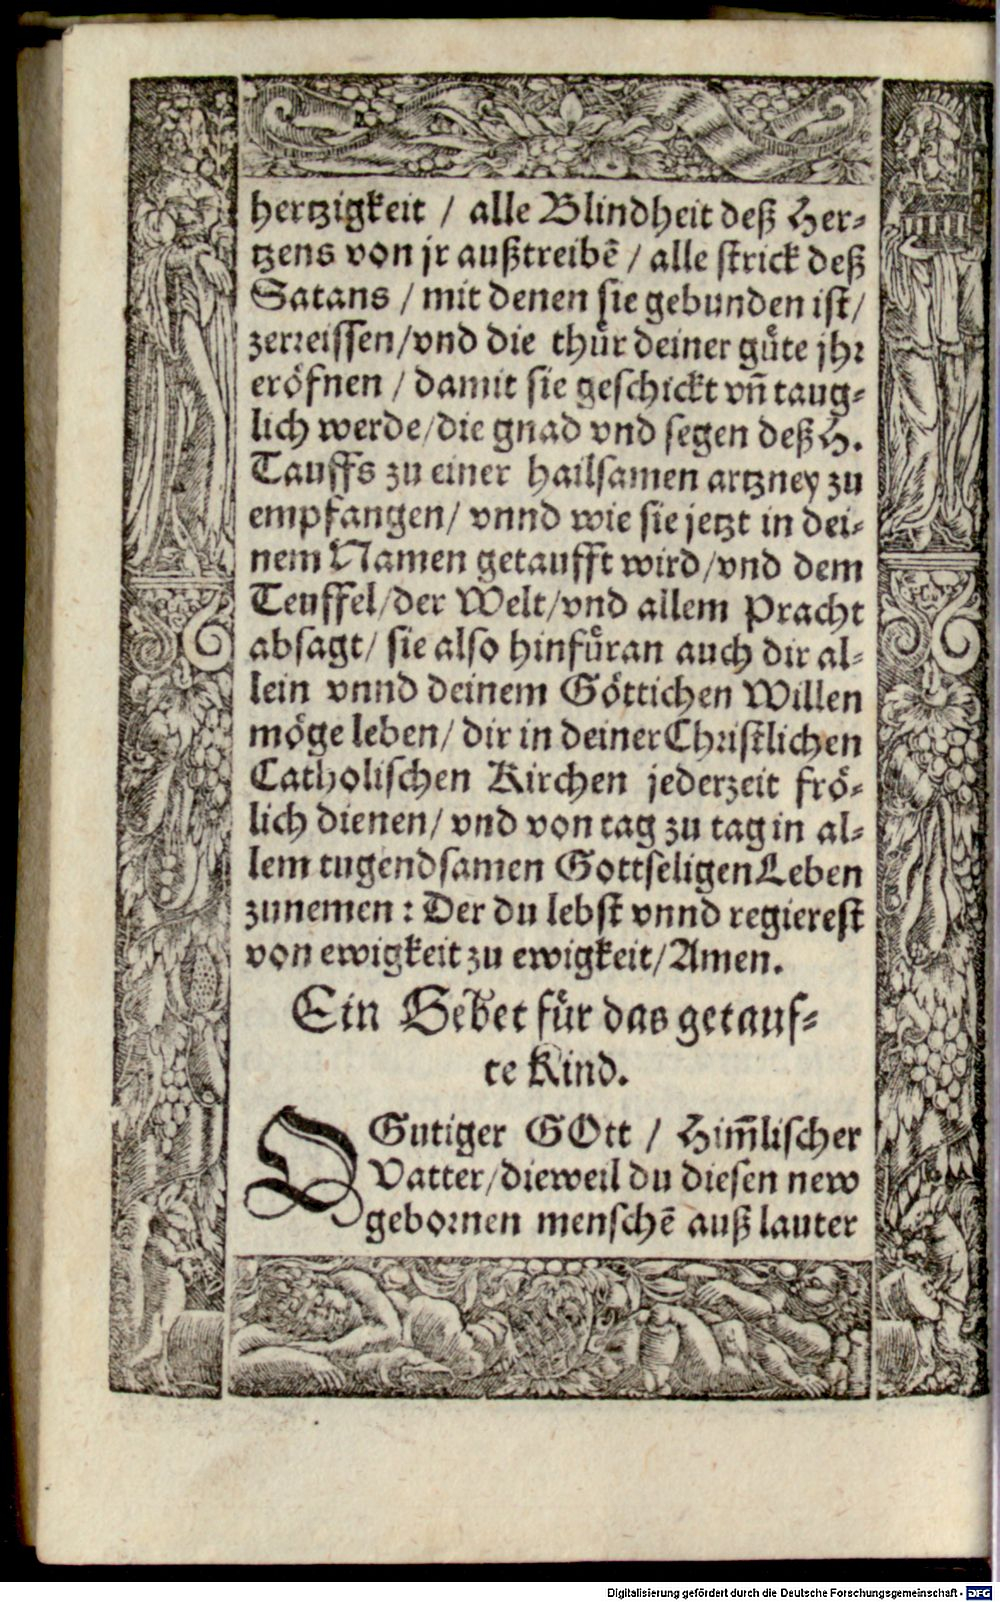 hertzigkeit / alle Blindheit deß Her⸗
tzens von jr außtreibē / alle strick deß
Satans / mit denen sie gebunden ist/
zerreissen/vnd die thuͤr deiner guͤte jhr
eröfnen / damit sie geschickt vn̄ taug⸗
lich werde/die gnad vnd segen deß H.
Tauffs zu einer hailsamen artzney zu
empfangen/ vnnd wie sie jetzt in dei⸗
nem Namen getaufft wird/vnd dem
Teuffel/der Welt/vnd allem Pracht
absagt/ sie also hinfuͤran auch dir al⸗
lein vnnd deinem Göttichen Willen
möge leben/ dir in deiner Christlichen
Catholischen Kirchen jederzeit frö⸗
lich dienen/ vnd von tag zu tag in al⸗
lem tugendsamen Gottseligen Leben
zunemen : Der du lebst vnnd regierest
von ewigkeit zu ewigkeit/Amen.
Ein Gebet fuͤr das getauf⸗
te Kind.
O Gutiger GOtt / Him̄lischer
Vatter/dieweil du diesen new
gebornen menschē auß lauter
Digitalisierung gefördert durch die Deutsche Forschungsgemeinschaft - DFG